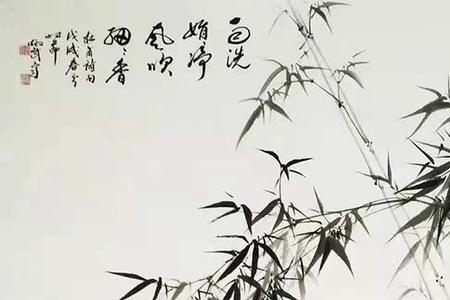 雨洗
娟净
风吹
细细香
杜甫诗句
戊戌春分